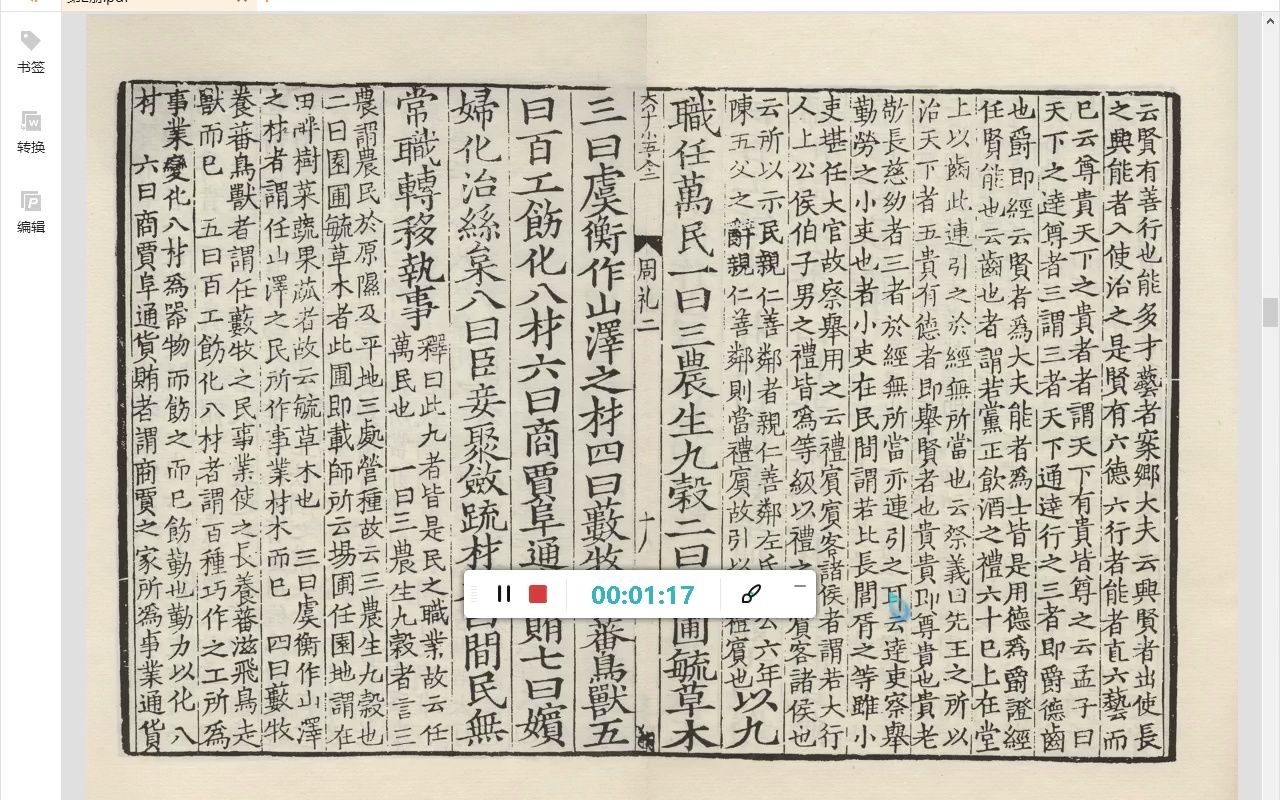 第2册.pdf
书签
转换
编辑
云賢有善行也能多才藝者案鄉大夫云興賢者出使長
之興能者入使治之是賢有六德六行者能者直六藝而
巳云尊貴天下之貴者者謂天下有貴皆尊之云孟子曰
天下之達尊者三謂三者天下通達行之三者即爵德齒
也爵即經云賢者爲大夫能者爲士皆是用德爲爵證經
任賢能也云齒也者謂若黨正飲酒之禮六十巳上在堂
上以齒此連引之於經無所當也云祭義曰先王之所以
治天下者五貴有德者即舉賢者也貴貴即尊貴也貴老
敬長慈幼者三者於經無所當亦連引之耳云達吏察舉
勤勞之小吏也者小吏在民間謂若比長閭胥之等雖小
吏堪任大官故察舉用之云禮賓賓客諸侯者謂若大行
人上公侯伯子男之禮皆爲等級以禮之賓客諸侯也
云所以示民親仁善鄰者親仁善鄰左氏公六年
陳五父之辭親仁善鄰則當禮賓故引以禮賓也
以九
職任萬民一曰三農生九穀二曰圃毓草木
周礼二
三曰虞衡作山澤之材四曰藪牧蕃鳥獸五
曰百工飭化八材六曰商賈阜通賄七曰嬪
婦化治絲枲八曰臣妾聚斂疏材曰間民無
常職轉移執事
釋曰此九者皆是民之職業故云任
萬民也 一曰三農生九穀者言三
農謂農民於原隰及平地三處營種故云三農生九穀也
二曰園圃毓草木者此圃即載師所云場圃任園地謂在
田畔樹菜蔬果蓏者故云毓草木也 三曰虞衡作山澤
之材者謂任山澤之民所作事業材木而巳 四曰藪牧
養蕃鳥獸者謂任藪牧之民事業使之長養蕃滋飛鳥走
獸而巳 五曰百工飭化八材者謂百種巧作之工所爲
事業變化八材爲器物而飭之而巳飭勤也勤力以化八
材 六曰商賈阜通貨賄者謂商賈之家所爲事業通貨
00:01:17